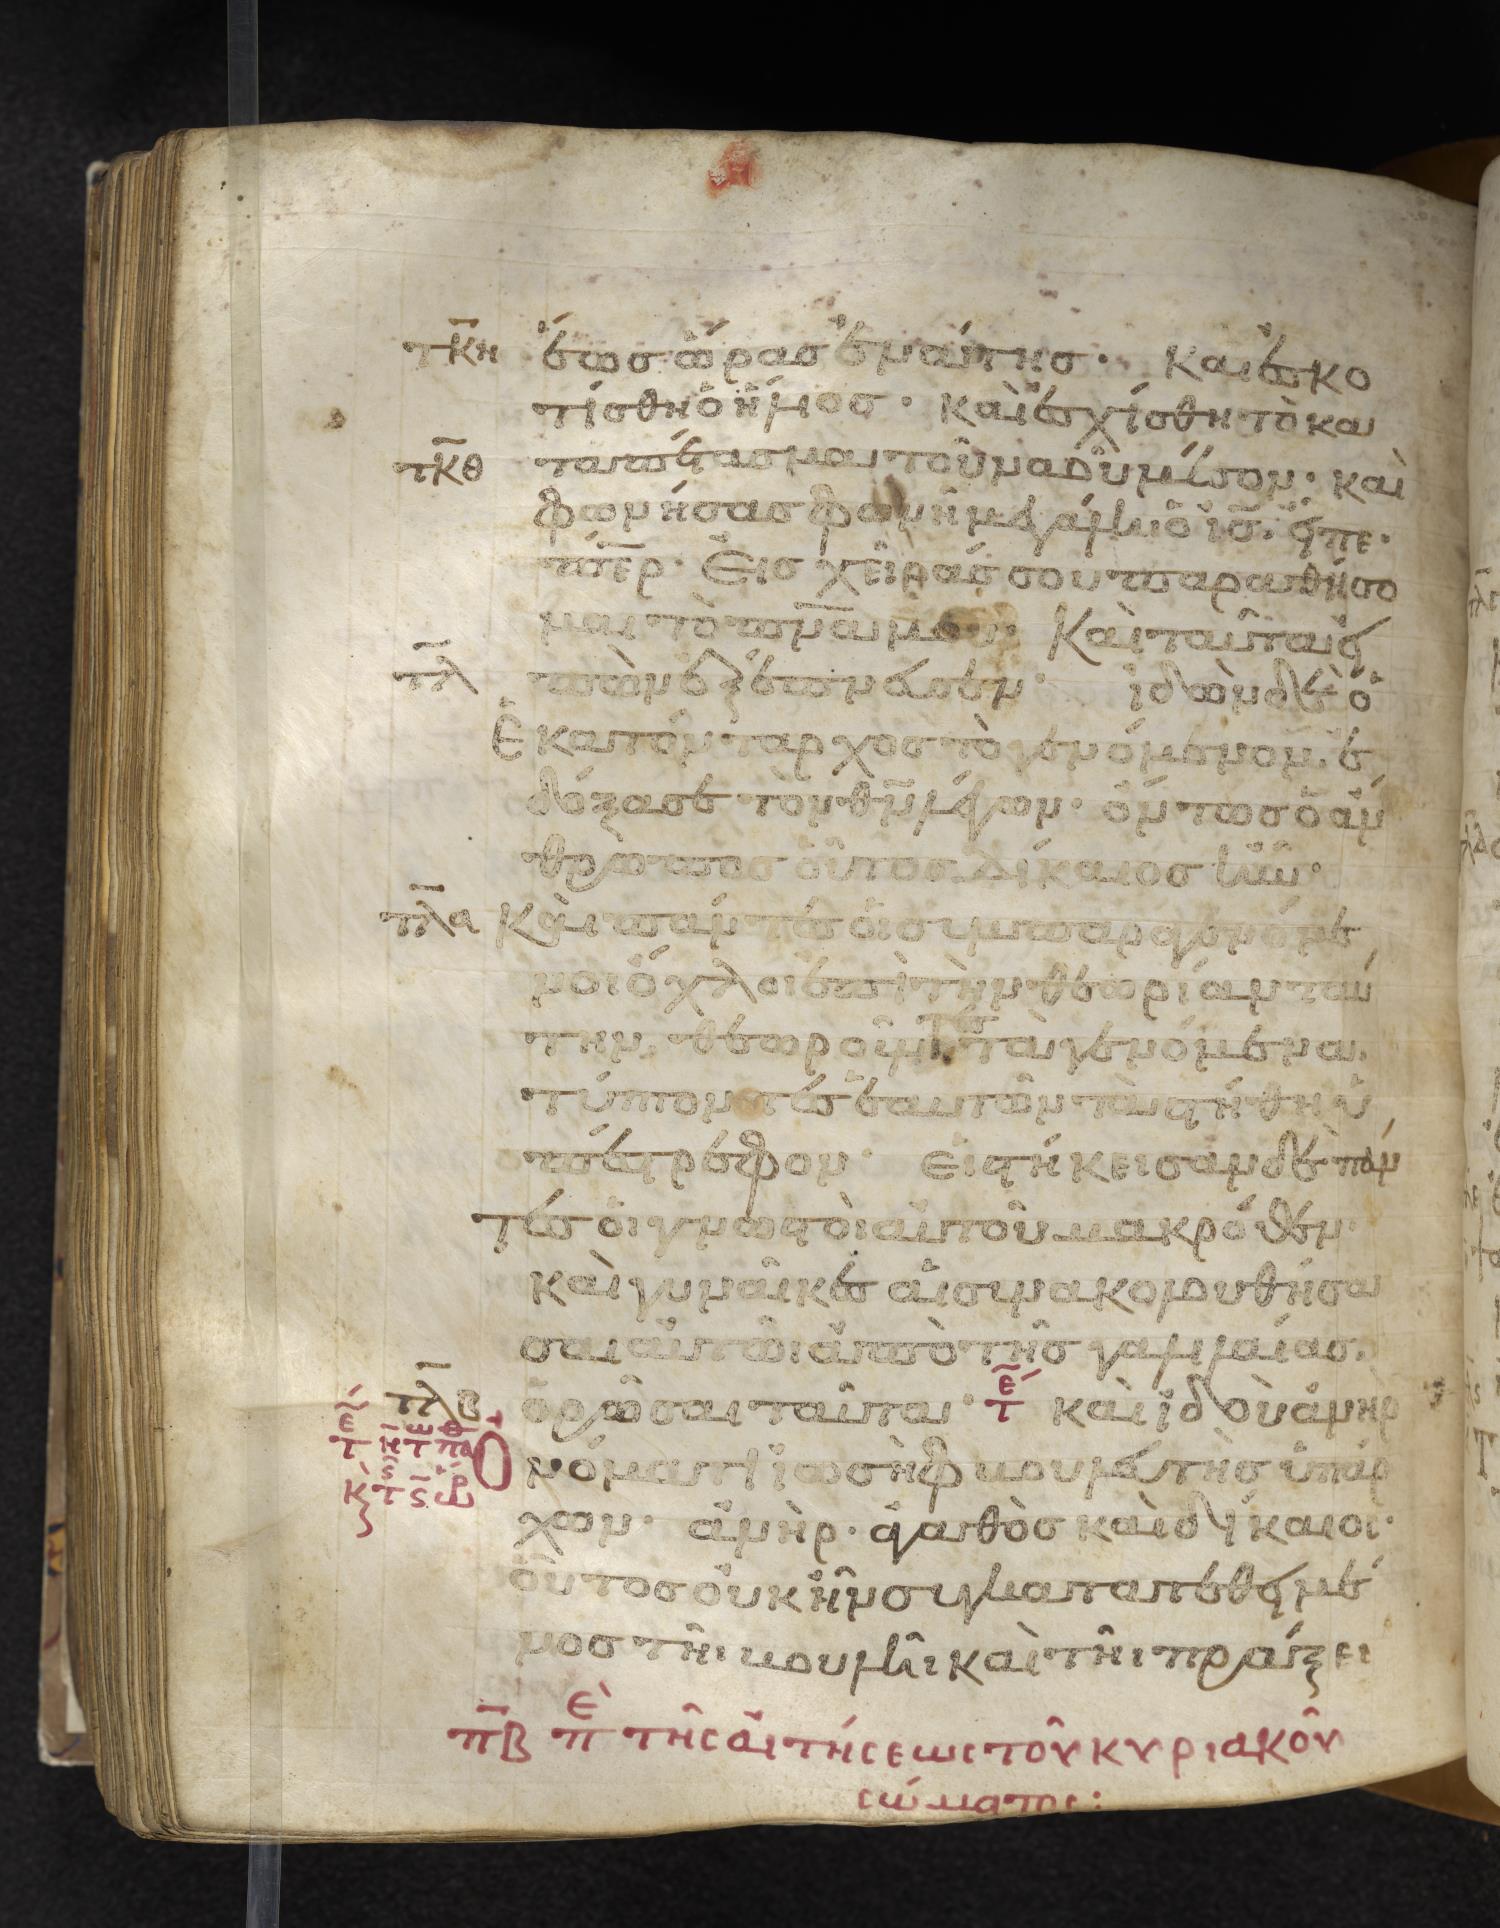 τκη ἕως ὥρας ἐνάτης· Καὶ ἐσκο
τίσθη ὁ ἥλιος· καὶ ἐσχίσθη τὸ κα
τκθ ταπέτασμα τοῦ ναοῦ μέσον· καὶ
φωνήσας φωνῆ μεγάλη ὁ ις. εἶπε·
πάτερ· Εἰς χεῖράς σου παραθήσο
μαι τὸ πνα μου· Καὶ ταῦτα εἰ
τλ πὼν ἐξέπνευσεν· ἰδὼν δὲ ὁ
ἑκατόνταρχος τὸ γενόμενον. ἐ
δόξασε τὸν θν λέγων· ὄντως ὁ ἄν
θρωπος οὗτος δίκαιος ἦν·
τλα Καὶ πάντες οἱ συμπαραγενόμε
νοι ὄχλοι ἐπὶ τὴν θεωρίαν ταύ
την. θεωροῦντες τὰ γενόμενα.
τύπτοντες ἑαυτῶν τὰ στήθη ὑ
πέστρεφον· Εἱστήκεισαν δὲ πάν
τες οἱ γνωστοὶ αὐτοῦ μακρόθεν·
καὶ γυναῖκες αἱ συνακολουθήσα
σαι αὐτῶι ἀπὸ τῆς γαλιλαίας.
τλβ ὁρῶσαι ταῦτα· τε καὶ ἰδοὺ ἀνὴρ
Ὀνόματι ἰωσὴφ βουλευτὴς ὑπάρ
χων· ἀνὴρ· ἀγαθὸς καὶ δίκαιος·
οὗτος οὐκ ἦν συγκατατεθειμέ
νος τῆι βουλῆι καὶ τῆι πράξει
πβ πε τῆς αἰτήσεως τοῦ κυριακοῦ
σώματος: